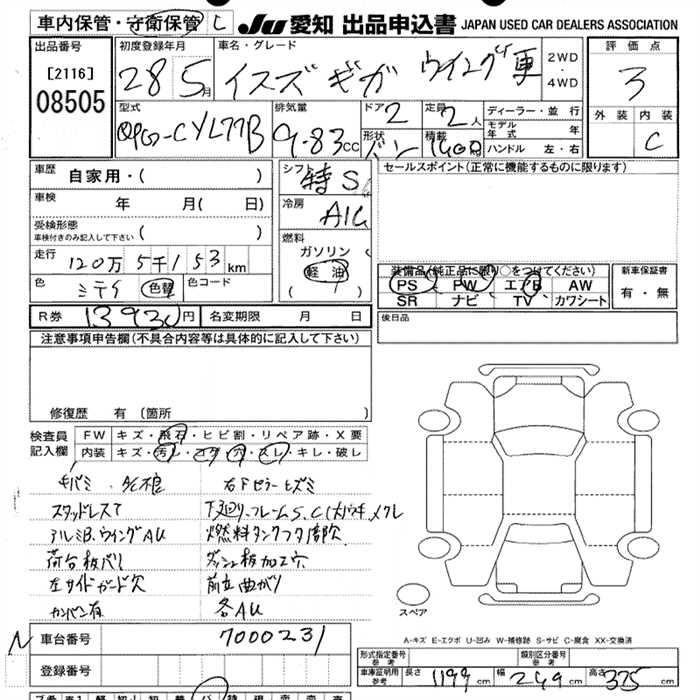 車内保管・守衛保管 し JU 愛知 出品申込書 JAPAN USED CAR DEALERS ASSOCIATION
出品番号 初度登録年月 車名・グレード 2WD ・ 4WD 評価点
[2116] 28 5月 イスズ ギガ ウイング車 3
08505 型式 排気量 ドア 2 定員 2人 ディーラー・並行 外装 内装
QPG-CYL77B 9.83cc 形状 バン 積載 kg モデル年式 年 C
ハンドル 左・右
車歴 自家用・( ) シフト 特 S セールスポイント(正常に機能するものに限ります)
車検 年 月( 日) 冷房 A/C
受検形態 車検付きのみ記入して下さい ( ) 燃料
走行 120万5千153km ガソリン
色 ミテイ 色替 色コード 軽油 ( ) 装備品(純正品に限り○をつけてください) 新車保証書
PS PW エアB AW 有・無
SR ナビ TV カワシート
R券 13930円 名変期限 月 日 後日品
注意事項申告欄(不具合内容等は具体的に記入して下さい)
修復歴 有(箇所 )
検査員記入欄 FW キズ・飛石・ヒビ割・リペア跡・X要
内装 キズ・汚レ・コゲ・穴・スレ・キレ・破レ
右Fピラーヒズミ
スタッドレスT 下廻り、フレームS、C
アルミB、ウイングAU 燃料タンクフタ1部欠
荷台板バリ ダッシュ板加工穴
左サイドガード欠 前立曲がり
カンバン有 各AU
スペア
A-キズ E-エクボ U-凹み W-補修跡 S-サビ C-腐食 XX-交換済
N 車台番号 7000231
登録番号
形式指定番号 参考 類別区分番号 参考
車庫証明用 参考 長さ 1199cm 幅 249cm 高さ 375cm